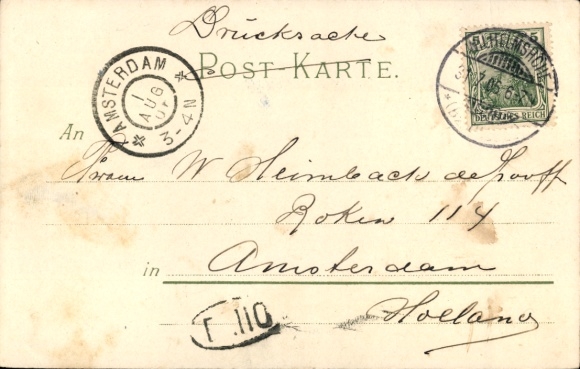 Drucksache
POST KARTE.
AMSTERDAM
1
AUG
3-4N
DEUTSCHES REICH
An
W Heimback de Hooff
Rokin 114
in Amsterdam
Holland
F.110